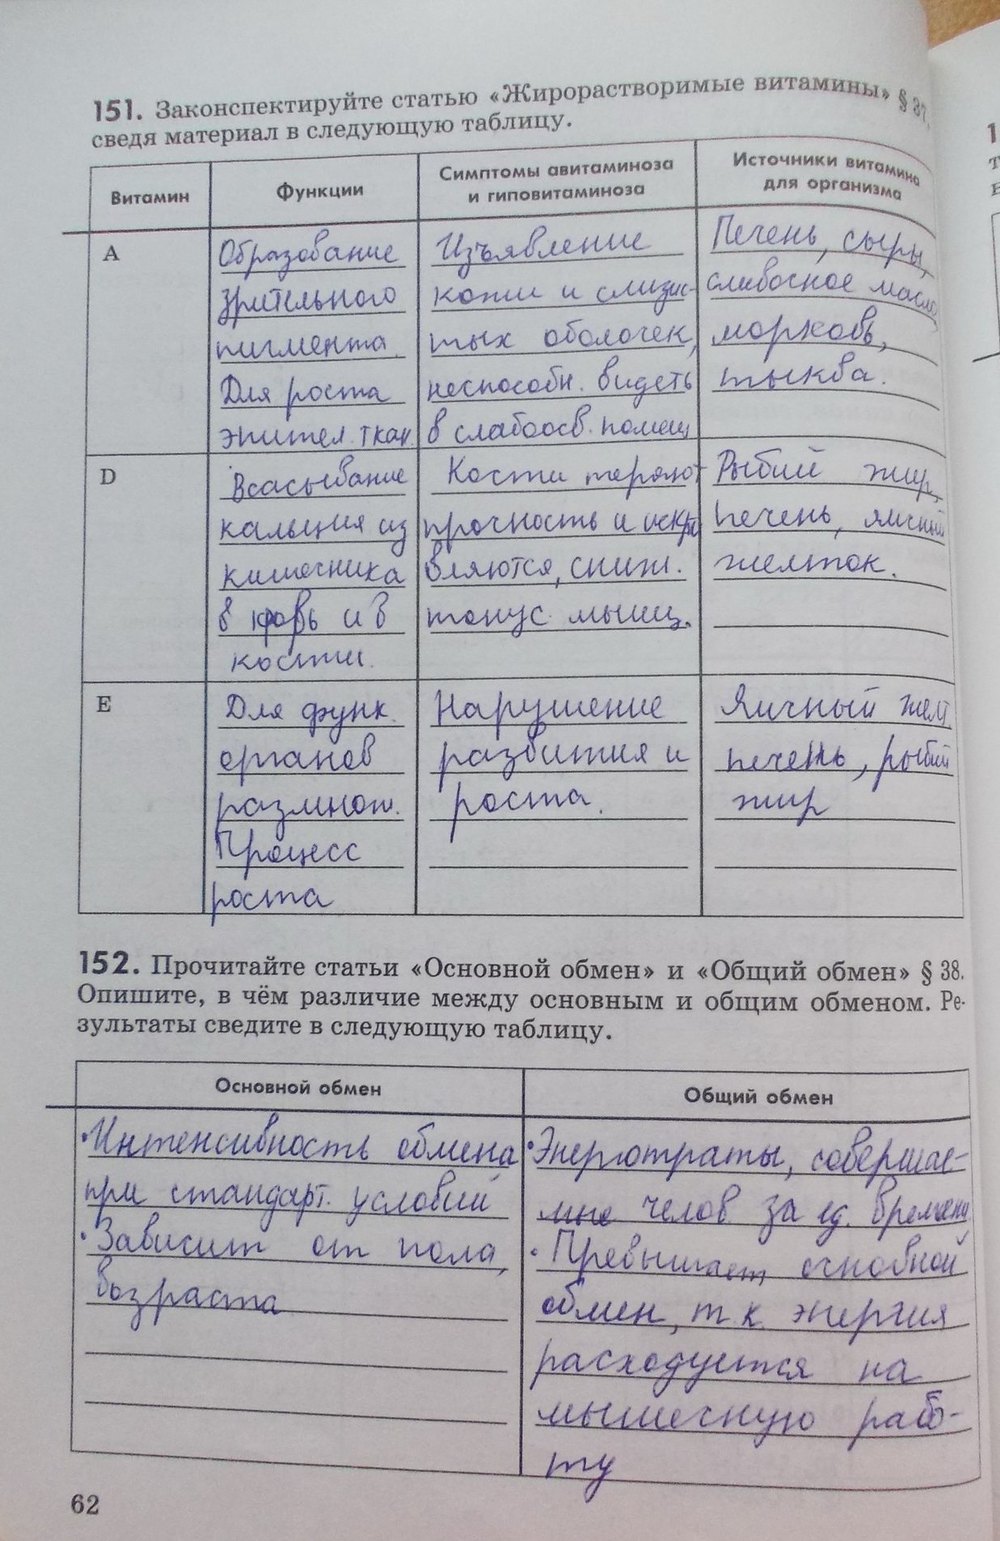 151. Законспектируйте статью «Жирорастворимые витамины» § 37,
сведя материал в следующую таблицу.
Витамин
Функции
Симптомы авитаминоза
и гиповитаминоза
Источники витамина
для организма
А
Образование
зрительного
пигмента.
Для роста
эпител. ткан.
Изъявление
кожи и слизис-
тых оболочек,
неспособн. видеть
в слабоосв. помещ
Печень, сыры,
сливочное масло,
морковь,
тыква.
D
Всасывание
кальция из
кишечника
в кровь и в
кости.
Кости теряют
прочность и искри
вляются, сниж.
тонус мышц.
Рыбий жир,
печень, яичный
желток.
Е
Для функ.
органов
размнож.
Процесс
роста
Нарушение
развития и
роста.
Яичный желт.
печень, рыбий
жир
152. Прочитайте статьи «Основной обмен» и «Общий обмен» § 38.
Опишите, в чём различие между основным и общим обменом. Ре-
зультаты сведите в следующую таблицу.
Основной обмен
Общий обмен
• Интенсивность обмена
при стандарт. условий
• Зависит от пола,
возраста
• Энерготраты, совершае-
мые челов. за ед. времени
• Превышает основной
обмен, т.к. энергия
расходуется на
мышечную рабо-
ту
62